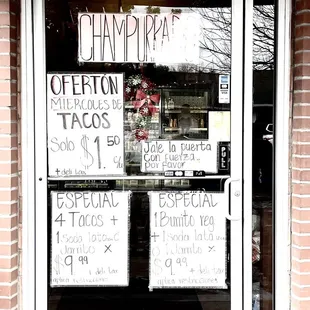 CHAMPURRA
OFERTÓN
MIERCOLES DE
TACOS
Solo $1.50 c/u
Jale la puerta
con fuerza
por favor
PULL
ESPECIAL
4 Tacos +
1 soda lata o
Jarrito x
$9.99
ESPECIAL
1 Burrito reg
+ 1 soda lata
o Jarrito x
$9.99